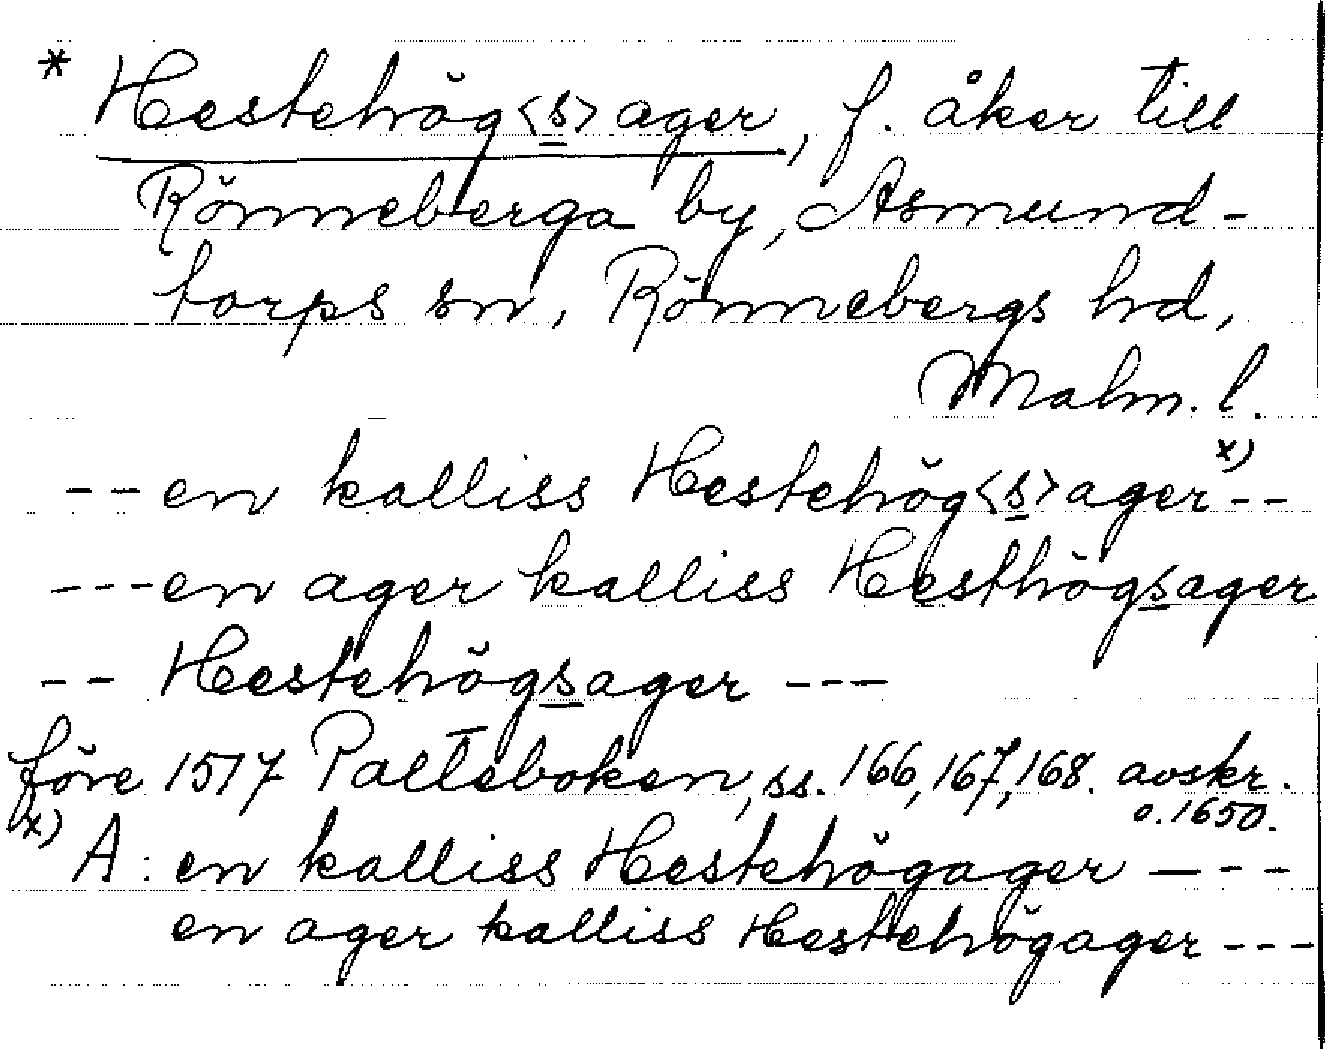 * Hestehög<s>ager, f. åker till
Rönneberga by, Asmund-
torps sn, Rönnebergs hd,
Malm. l.
-- en kalliss Hestehög<s>ager x) --
--- en ager kalliss Hesthögsager
-- Hestehögsager ---
före 1517 Palteboken, ss. 166, 167, 168. avskr.
o. 1650.
x) A: en kalliss Hestehögager ---
en ager kalliss Hestehögager ---